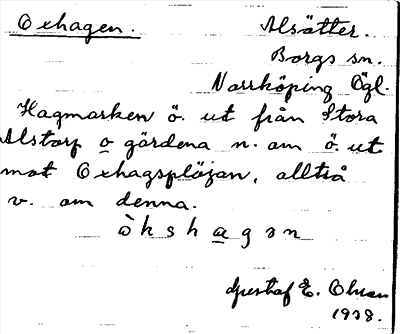 Oxhagen.
Alsätter.
Borgs sn.
Norrköping Ögl.
Hagmarken ö. ut från Stora
Alstorp o gärdena n. om ö. ut
mot Oxhagsplöjan, alltså
v. om denna.
òkshagən
Gustaf E. Ohlson
1938.